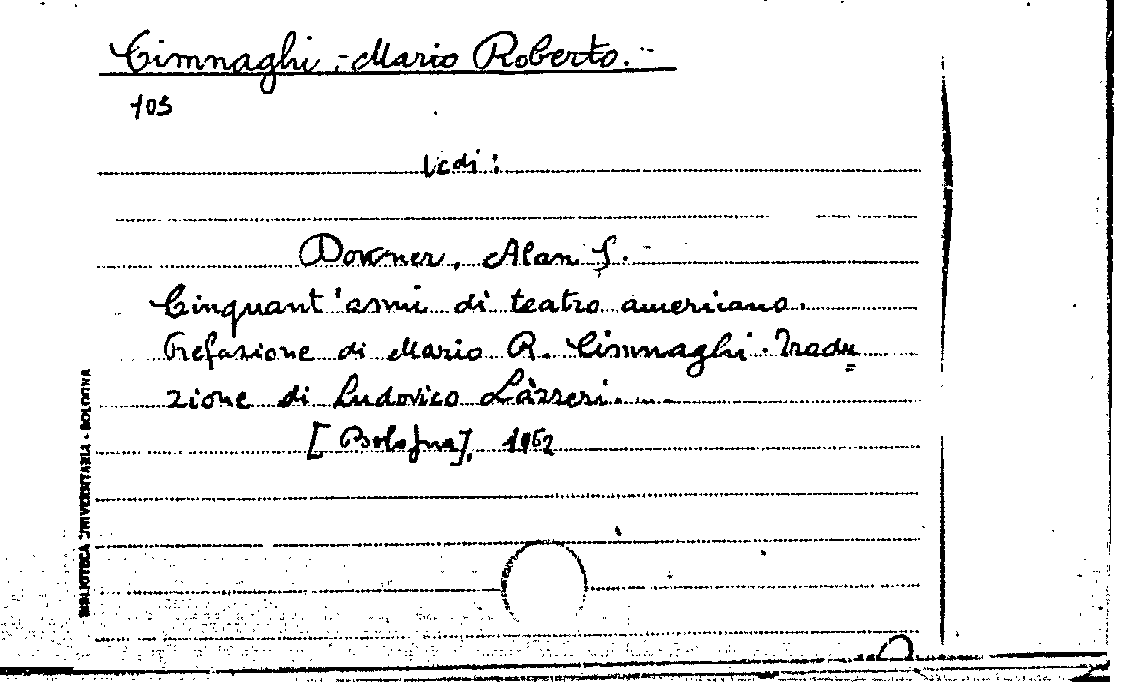 Cimnaghi, Mario Roberto.-
103
Vedi:
Downer, Alan S.-
Cinquant'anni di teatro americano.
Prefazione di Mario R. Cimnaghi. Tradu=
zione di Ludovico Làzzeri.
[Bologna], 1962
BIBLIOTECA UNIVERSITARIA - BOLOGNA